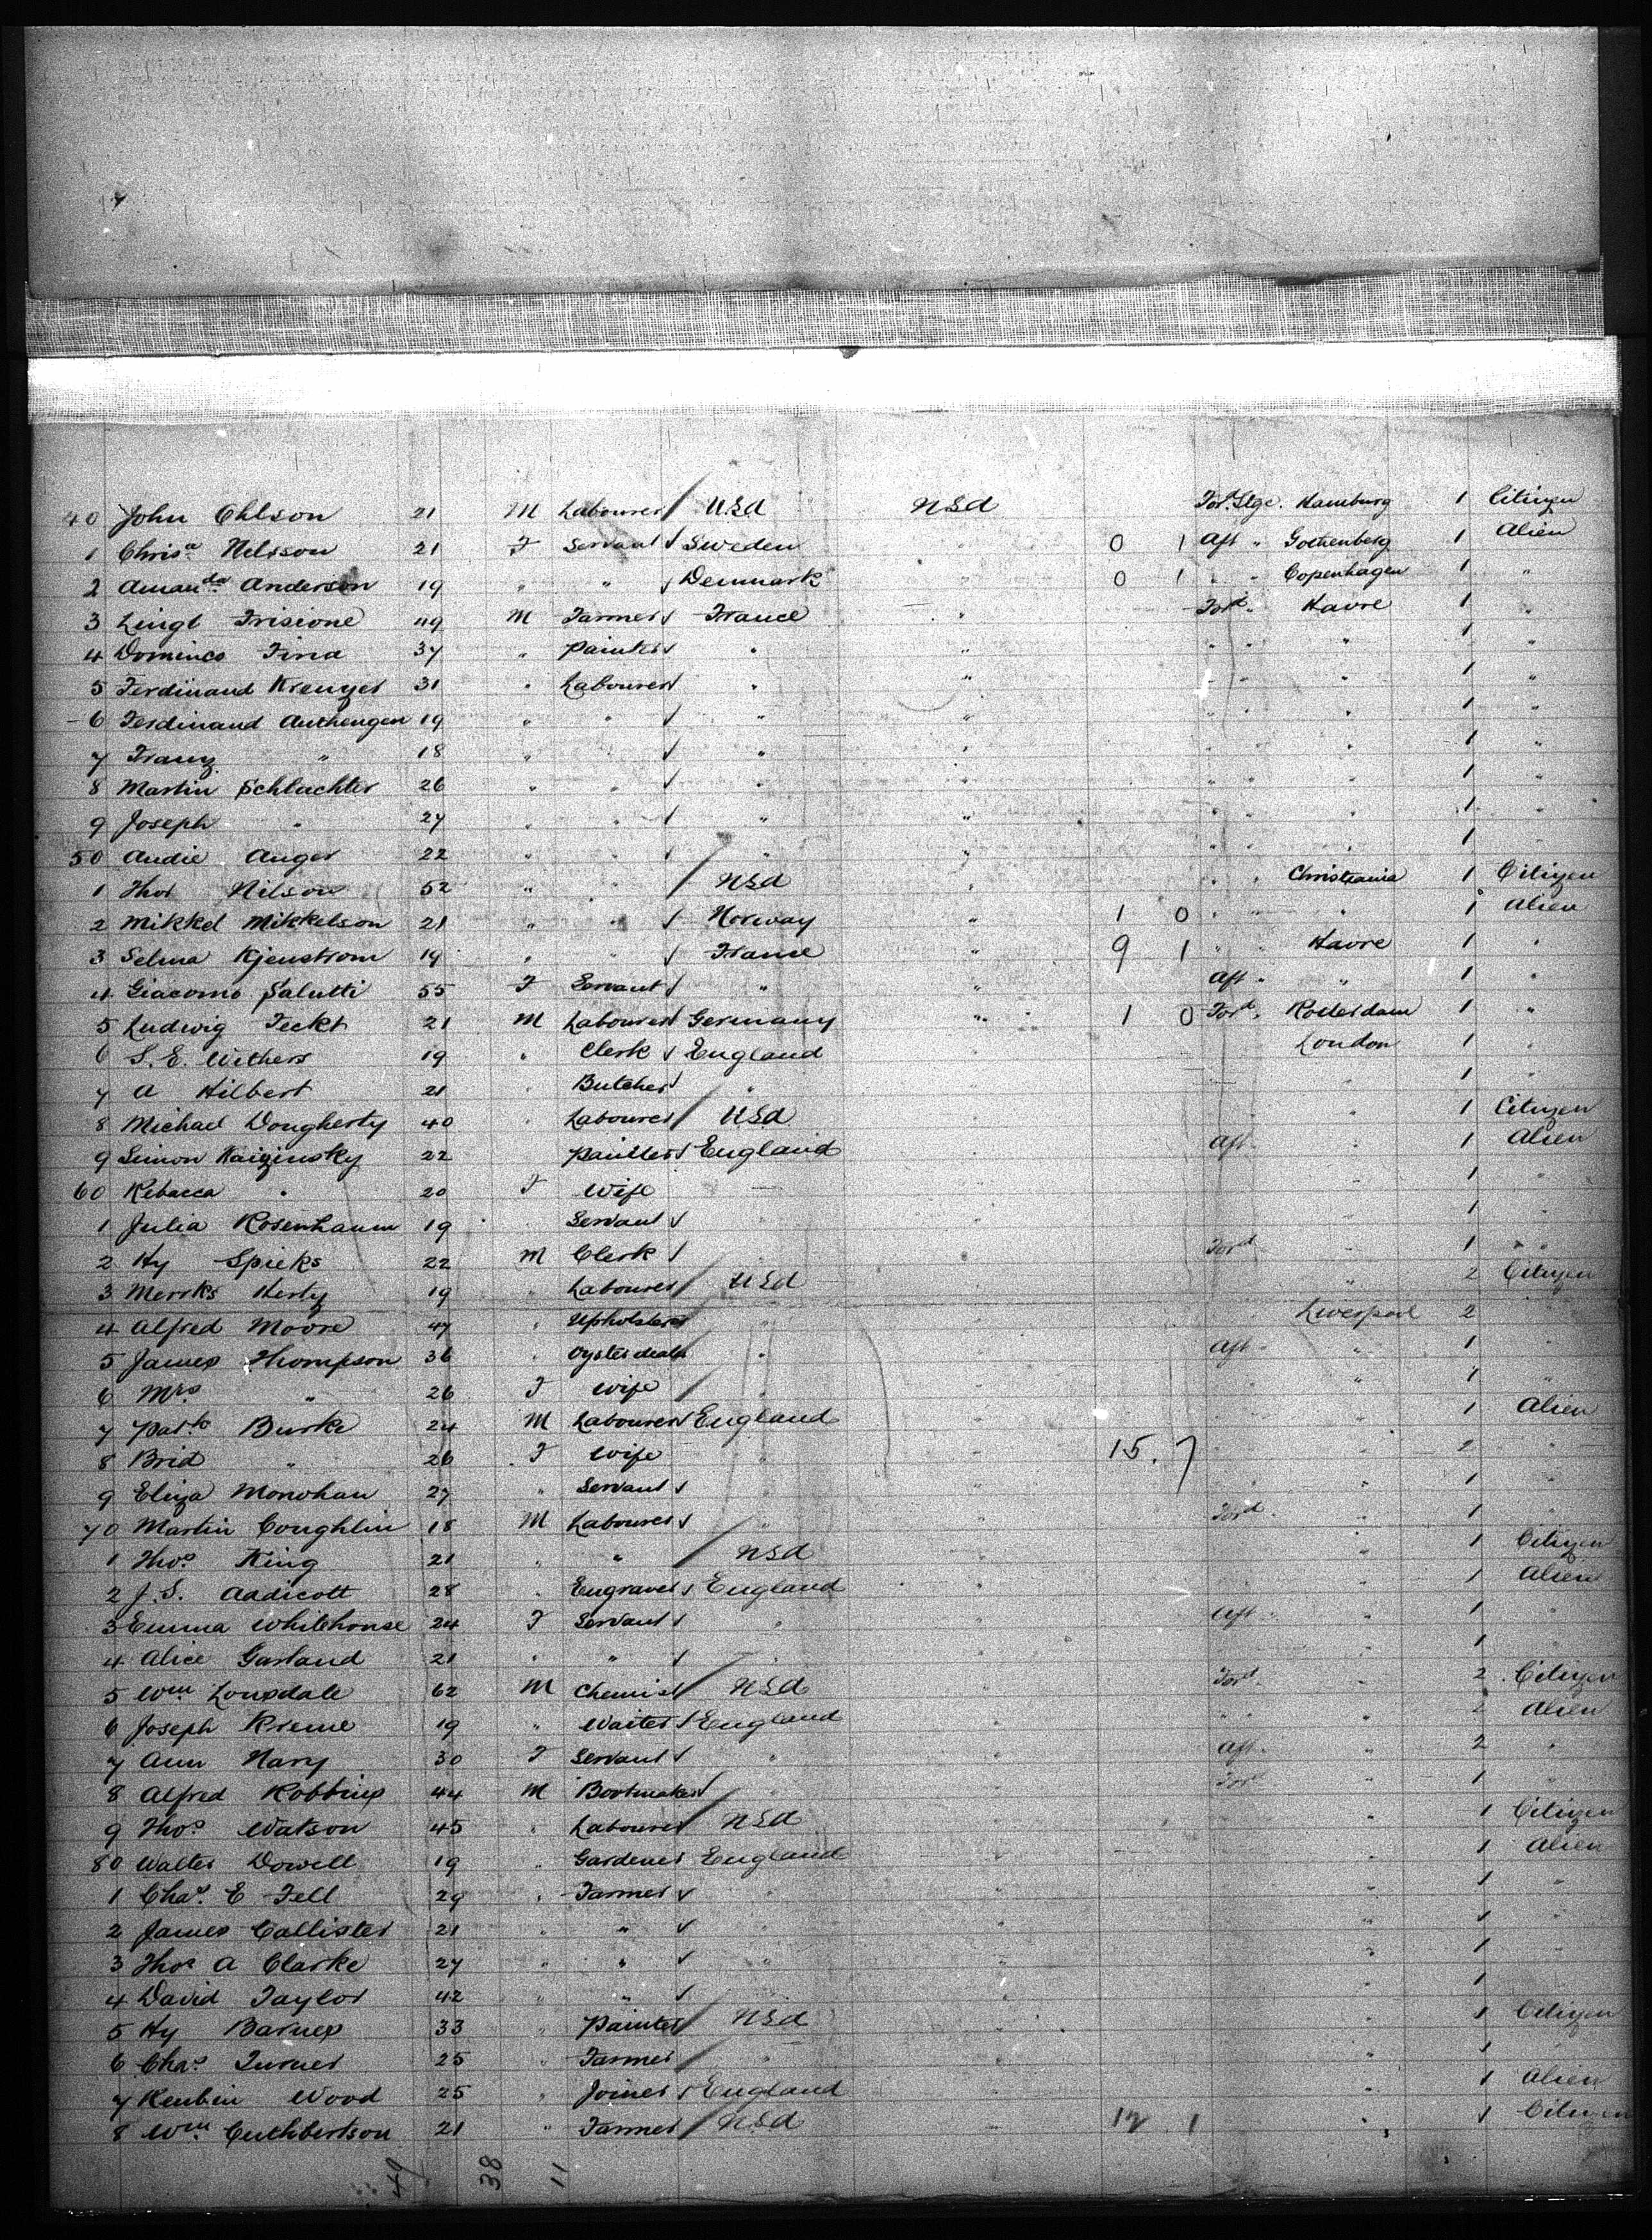 40 John Ohlson 21 M Labourer USA USA For. Stge. Hamburg 1 Citizen
1 Chrisa Nilsson 21 F Servant Sweden " 0 1 Aft " Gothenberg 1 Alien
2 Amanda Anderson 19 " " Denmark " 0 1 " " Copenhagen 1 "
3 Lingl Frisione 49 M Farmer France " Ford " Havre 1 "
4 Dominco Fina 37 " Painter " " " " " 1 "
5 Ferdinand Krenzer 31 " Labourer " " " " " 1 "
6 Ferdinand Authengen 19 " " " " " " " 1 "
7 Franz " 18 " " " " " " " 1 "
8 Martin Schlachter 26 " " " " " " " 1 "
9 Joseph " 27 " " " " " " " 1 "
50 Andie Auger 22 " " " " " " " 1 "
1 Thor Nilson 52 " " USA " " " Christiania 1 Citizen
2 Mikkel Mikkelson 21 " " Norway " 1 0 " " " 1 Alien
3 Selma Kjenstrom 19 " " France " 9 1 " " Havre 1 "
4 Giacomo Salutti 55 F Servant " " Aft " " 1 "
5 Ludwig Teckt 21 M Labourer Germany " 1 0 Ford " Rotterdam 1 "
6 S. E. Withers 19 " Clerk England " London 1 "
7 A Hilbert 21 " Butcher " 1 "
8 Michael Dougherty 40 " Labourer USA " 1 Citizen
9 Simon Kaizinsky 22 Painter England Aft " " 1 Alien
60 Rebacca " 20 F Wife 1 "
1 Julia Rosenhaum 19 " Servant 1 "
2 Hy Spieks 22 M Clerk " Ford " " 1 "
3 Merrks Herly 19 " Labourer USA " 2 Citizen
4 Alfred Moore 47 " Upholsterer " Liverpool 2
5 James Thompson 36 " Oyster dealer " Aft " " 1 "
6 Mrs " 26 F Wife " " 1 "
7 Patk Burke 24 M Labourer England " 1 Alien
8 Brid " 26 F Wife " 15. 7 " " 2 "
9 Eliza Monohan 27 " Servant " " 1 "
70 Martin Coughlin 18 M Labourer " Ford " " 1 "
1 Thos King 21 " " USA " 1 Citizen
2 J. S. Aadicott 28 " Engraver England " 1 Alien
3 Emma Whitehouse 24 F Servant " Aft " " 1 "
4 Alice Garland 21 " " " 1
5 Wm Lonsdale 62 M Chemist USA Ford " 2 Citizen
6 Joseph Kreme 19 " Waiter England " " 2 Alien
7 Ann Nary 30 F Servant " Aft " " 2 "
8 Alfred Robbins 44 M Bootmaker " Ford " 1 "
9 Thos Watson 45 " Labourer USA " 1 Citizen
80 Walter Dowell 19 " Gardener England 1 Alien
1 Chas. E Fell 29 " Farmer " " 1 "
2 James Callister 21 " " " " 1
3 Thos A Clarke 27 " " " " 1 "
4 David Taylor 42 " " " 1
5 Hy Barnes 33 " Painter USA " 1 Citizen
6 Chas Turner 25 " Farmer " " 1 "
7 Reubin Wood 25 " Joiner England " 1 Alien
8 Wm Cuthbertson 21 " Farmer USA 17 1 " 1 Citizen
49 38 11